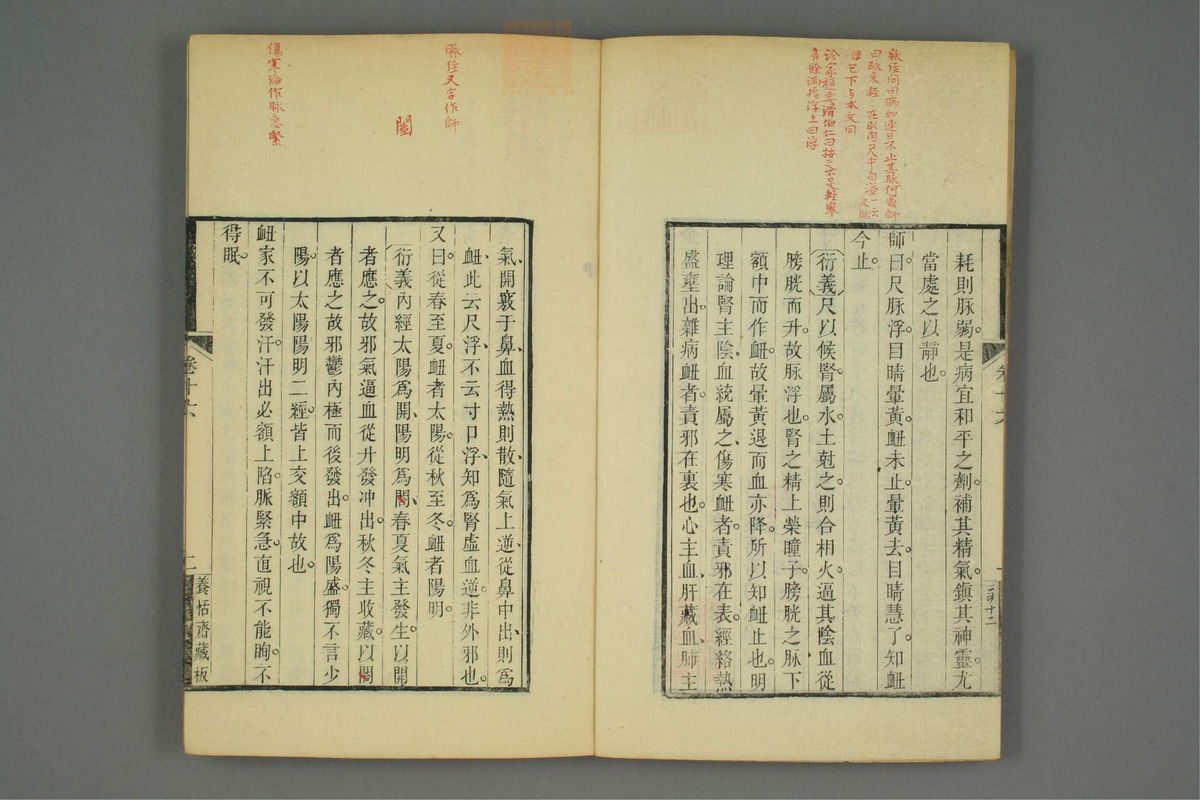 脉經問曰病衄連日不止其脉何類師
曰脉來輕輕在肌肉尺中自溢一云尺脉
浮已下与本文同
診家樞要滑伯仁曰按之不足輕舉
有餘滿指浮上曰浮
耗則脉弱。是病宜和平之劑。補其精氣。鎮其神靈。尤
當處之以靜也。
師曰。尺脉浮。目睛暈黃。衄未止。暈黃去。目睛慧了。知衄
今止。
衍義尺以候腎。屬水。土尅之。則合相火。逼其陰血從
膀胱而升。故脉浮也。腎之精上榮瞳子。膀胱之脉下
額中而作衄。故暈黃退而血亦降。所以知衄止也。明
理論腎主陰、血統屬之、傷寒衄者。責邪在表。經絡熱
盛壅出。雜病衄者。責邪在裏也。心主血、肝藏血、肺主
卷十六
一
脉經又字作師
闔
傷寒論作脉急緊
氣、開竅于鼻、血得熱則散、隨氣上逆、從鼻中出、則爲
衄、此云尺浮、不云寸口浮、知爲腎虛血逆。非外邪也。
又曰。從春至夏。衄者太陽。從秋至冬。衄者陽明。
衍義內經太陽爲開、陽明爲閤、春夏氣主發生。以開
者應之。故邪氣逼血從升發冲出。秋冬主收藏。以閤
者應之。故邪鬱內極而後發出。衄爲陽盛。獨不言少
陽。以太陽陽明二經。皆上交額中故也。
衄家不可發汗。汗出必額上陷。脈緊急。直視不能眴。不
得眠。
卷十六
二
養恬齋藏板